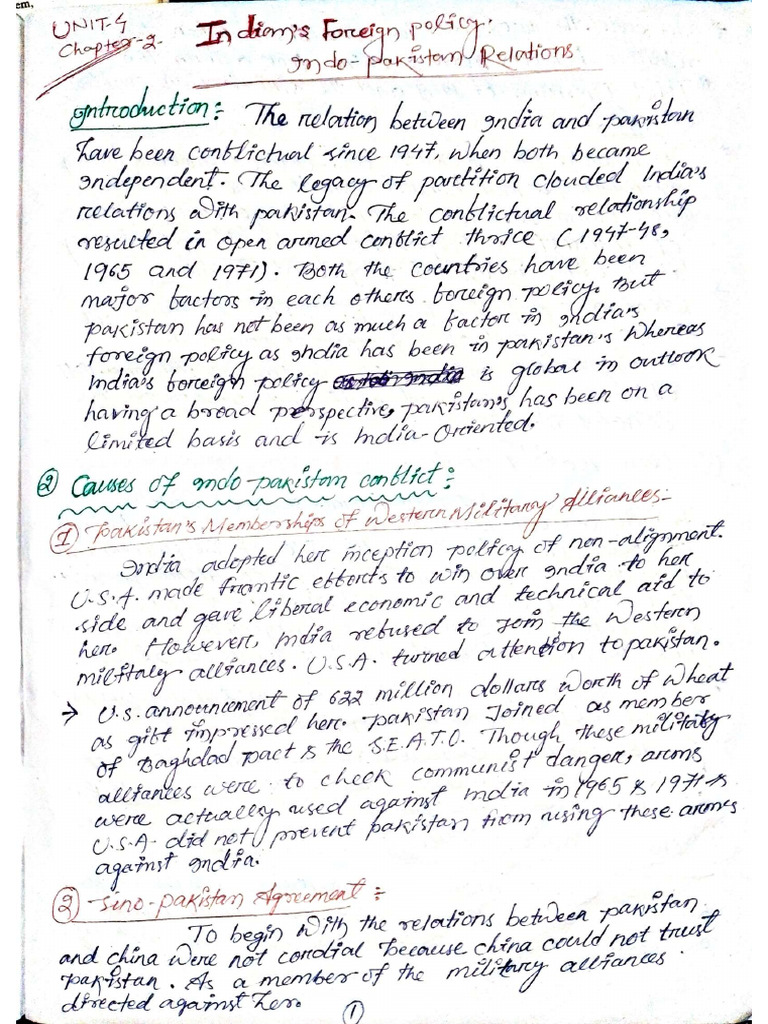 em,
UNIT-4
Chapter-2.
Indian's Foreign policy.
Indo-pakistan Relations
Introduction:- The relation between India and pakistan
have been conflictual since 1947, when both became
independent. The legacy of partition clouded India's
relations with pakistan. The conflictual relationship
resulted in open armed conflict thrice (1947-48,
1965 and 1971). Both the countries have been
major factors in each others foreign policy. But
pakistan has not been as much a factor in India's
foreign policy as India has been in pakistan's whereas
India's foreign policy is global in outlook
having a broad perspective, pakistan's has been on a
limited basis and is India-Oriented.
② Causes of Indo-pakistan conflict:-
① Pakistan's Memberships of Western Military Alliances-
India adopted her inception policy of non-alignment.
U.S.A. made frantic efforts to win over India to her
side and gave liberal economic and technical aid to
her. However, India refused to Join the Western
militaly alliances. U.S.A. turned attention to pakistan.
→ U.S. announcement of 622 million dollars worth of wheat
as gift impressed her. pakistan Joined as member
of Baghdad pact & the S.E.A.T.O. Though these military
alliances were to check communist danger, arms
were actually used against India in 1965 & 1971 &
U.S.A. did not prevent pakistan from using these arms
against India.
② Sino-pakistan Agreement:-
To begin with the relations between pakistan
and china were not cordial because china could not trust
pakistan. As a member of the military alliances
directed against her.
①